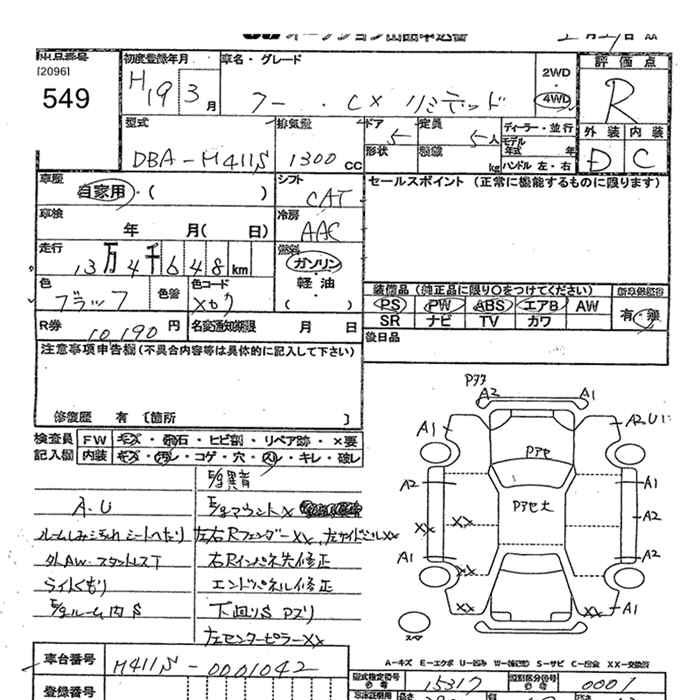 オークション出品申込書
出品番号 初度登録年月 車名・グレード 評価点
[2096]
549
H19 3月
フー . CX リミテッド
2WD
4WD
R
型式 排気量 ドア 定員 ディーラー・並行 外装 内装
DBA-M411S 1300cc 5 5人
モデル年式 年
形状 積載 kg ハンドル 左・右
D C
車歴 自家用・( )
シフト CAT
セールスポイント (正常に機能するものに限ります)
車検 年 月( 日)
冷房 AAC
走行 13万4千648km
燃料 ガソリン
軽油
( )
色 ブラック 色替 色コード
装備品(純正品に限り○をつけてください)
PS PW ABS エアB AW
SR ナビ TV カワ
有・無
R券 10190円 名変通知期限 月 日
後日品
注意事項申告欄(不具合内容等は具体的に記入して下さい)
修復歴 有 〔箇所 〕
検査員 FW キズ・飛石・ヒビ割・リペア跡・×要
記入欄 内装 キズ・汚レ・コゲ・穴・スレ・キレ・破レ
E/g異音
A.U
E/gマウント×
ルームしみ汚れシートへたり
左右Rフェンダーxx, 左サイドシルxx
外AW・スタッドレスT
右Rインパネ先修正
ライトくもり
エンドパネル修正
E/gルーム内S
下廻りS Pズリ
左センターピラーxx
Pアク
A2 A1
A1 A2 U1
Pアセ
A2 A1
Pアセ大
A2
xx xx
A1 A2
xx
xx xx A1
スペア
A-キズ E-エクボ U-凹み W-(補修跡) S-サビ C-腐食 XX-交換済
車台番号 M411S-0001042
型式指定番号 15317 類別区分番号 0001
登録番号